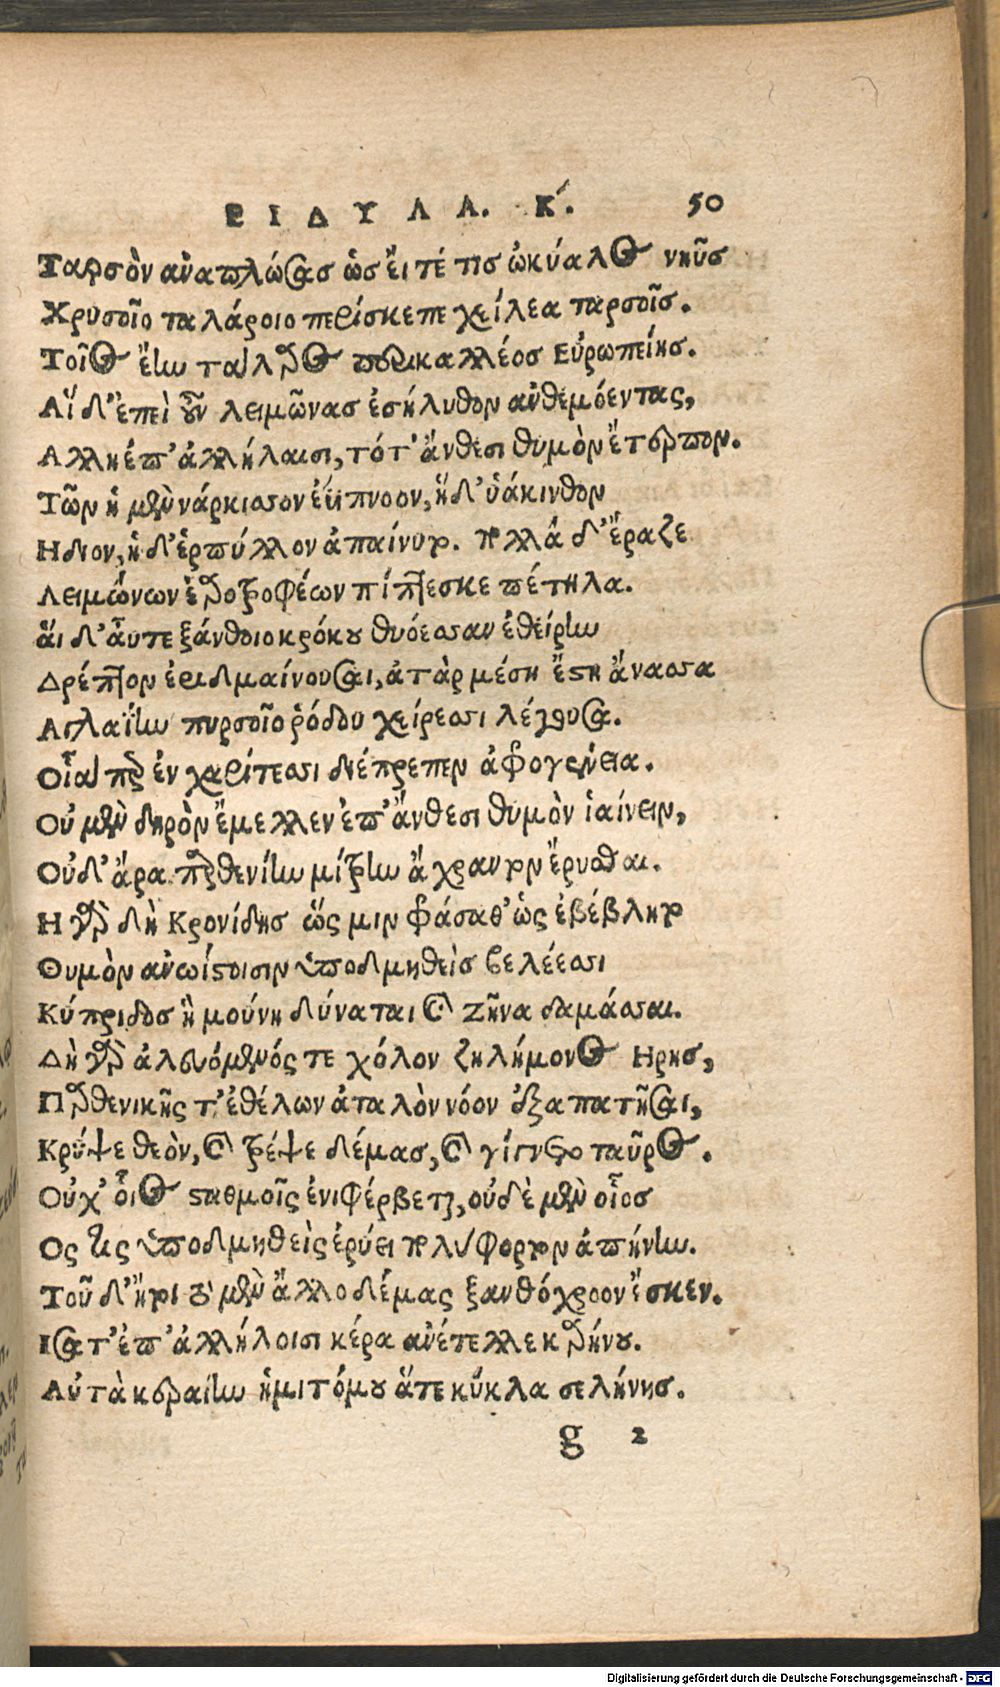 ΕΙΔΥΛΛ. Κ΄. 50
Ταρσὸν ἀναπλώσας ὡς ἔι τέ τις ὠκύαλος νηῦς
Χρυσοῖο ταλάροιο περίσκεπε χείλεα ταρσοῖς.
Τοῖος ἔην τάλαρος περικαλλέος Εὐρωπείης.
Αἵ δ' ἐπεὶ οὖν λειμῶνας ἐσήλυθον ἀνθεμόεντας,
Αλλη ἐπ' ἀλλήλαισι, τότ' ἄνθεσι θυμὸν ἔτερπον.
Τῶν ἡ μὲν νάρκισσον ἐΰπνοον, ἥ δ' ὑάκινθον
Ηδ ιον, ἡ δ' ἑρπύλλον ἀπαίνυτο. πολλὰ δ' ἔραζε
Λειμώνων ἐαροτροφέων πίπτεσκε πέτηλα.
ἅι δ' αὖτε ξάνθοιο κρόκου θυόεσσαν ἐθείρην
Δρέπτον ἐριδμαίνουσαι, ἀτὰρ μέση ἔστη ἄνασσα
Αγλαΐην πυρσοῖο ῥόδου χείρεσσι λέγουσα.
Οἷά περ ἐν χαρίτεσσι διέπρεπεν ἀφρογένεια.
Οὐ μὲν δηρὸν ἔμελλεν ἐπ' ἄνθεσι θυμὸν ἰαίνειν,
Οὐδ' ἄρα παρθενίην μίτρην ἄχραντον ἔρυσθαι.
Η γὰρ δὴ Κρονίδης ὥς μιν φράσαθ' ὡς ἐβέβλητο
Θυμὸν ἀνωίστοισιν ὑποδμηθεὶς βελέεσσι
Κύπριδος ἣ μούνη δύναται καὶ Ζῆνα δαμάσσαι.
Δὴ γὰρ ἀλευόμενός τε χόλον ζηλήμονος Ηρης,
Παρθενικῆς τ' ἐθέλων ἀταλὸν νόον ἐξαπατῆσαι,
Κρύψε θεὸν, καὶ τρέψε δέμας, καὶ γίγνετο ταῦρος.
Οὐχ' οἷος σταθμοῖς ἐνιφέρβεται, οὐδὲ μὲν οἷος
Ος τις ὑποδμηθεὶς ἐρύει πολύφορτον ἀπήνην.
Τοῦ δ' ἤτοι τὸ μὲν ἄλλο δέμας ξανθόχροον ἔσκεν.
Ισα τ' ἐπ' ἀλλήλοισι κέρα ἀνέτελλε καρήνου.
Αὐτὰ κεραίην ἡμιτόμου ἅτε κύκλα σελήνης.
g 2
Digitalisierung gefördert durch die Deutsche Forschungsgemeinschaft - DFG